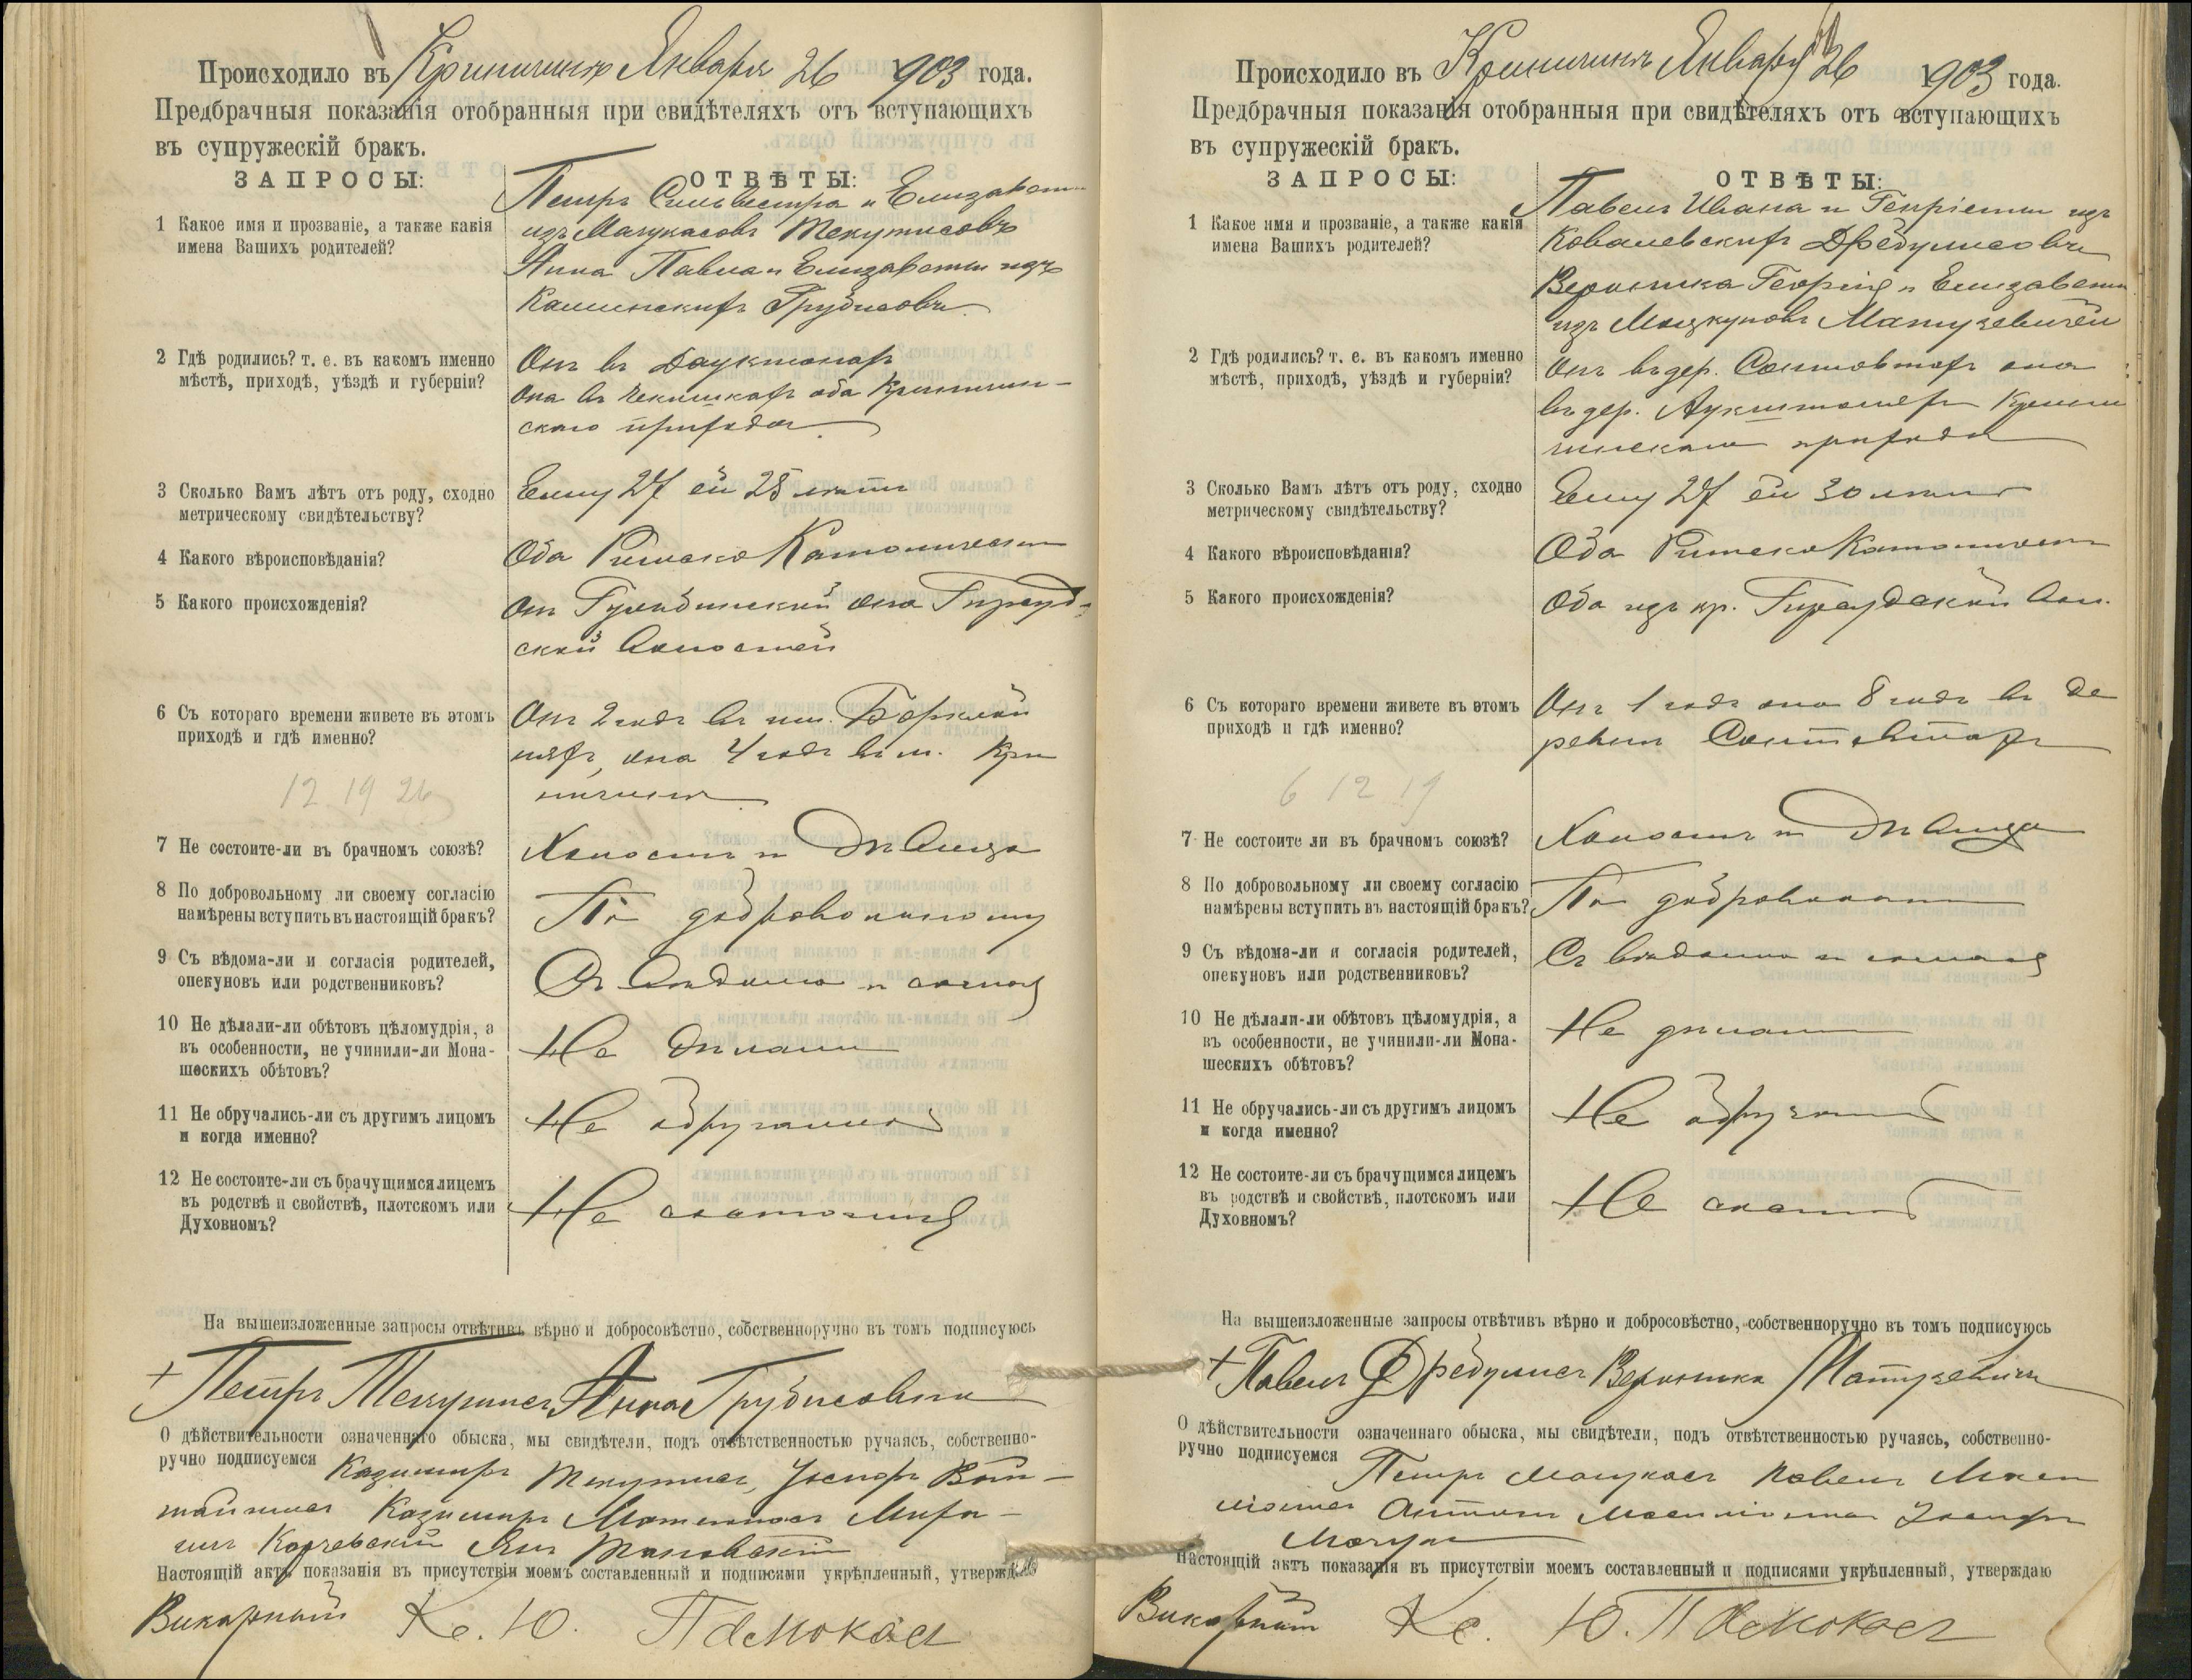 Происходило въ Криничинѣ Января 26 1903 года.
Предбрачныя показанія отобранныя при свидѣтеляхъ отъ вступающихъ
въ супружескій бракъ.
ЗАПРОСЫ: ОТВѢТЫ:
1 Какое имя и прозваніе, а также какія
имена Вашихъ родителей?
Петръ Сильвестра и Елизаветы
изъ Мацукасовъ Текутисовъ
Анна Павла и Елизаветы изъ
Каминскихъ Грубисовъ
2 Гдѣ родились? т. е. въ какомъ именно
мѣстѣ, приходѣ, уѣздѣ и губерніи?
Онъ въ
Она въ оба Криничин-
скаго прихода
3 Сколько Вамъ лѣтъ отъ роду, сходно
метрическому свидѣтельству?
Ему 27 ей 25 лѣтъ
4 Какого вѣроисповѣданія?
Оба Римско Католическ
5 Какого происхожденія?
Онъ она Гирсуд-
ской Волостей
6 Съ котораго времени живете въ этомъ
приходѣ и гдѣ именно?
Онъ 2 года въ им.
она 4 года въ м. Кри
ничинѣ
12 19 26
7 Не состоите-ли въ брачномъ союзѣ?
Холостъ и Дѣвица
8 По добровольному ли своему согласію
намѣрены вступить въ настоящій бракъ?
По добровольному
9 Съ вѣдома-ли и согласія родителей,
опекуновъ или родственниковъ?
Съ вѣдома и согласія
10 Не дѣлали-ли обѣтовъ цѣломудрія, а
въ особенности, не учинили-ли Мона-
шескихъ обѣтовъ?
Не дѣлали
11 Не обручались-ли съ другимъ лицомъ
и когда именно?
Не обручались
12 Не состоите-ли съ брачущимся лицемъ
въ родствѣ и свойствѣ, плотскомъ или
Духовномъ?
Не состоимъ
На вышеизложенные запросы отвѣтивъ вѣрно и добросовѣстно, собственноручно въ томъ подписуюсь
+ Петръ Текутисъ Анна Грубисовна
О дѣйствительности означеннаго обыска, мы свидѣтели, подъ отвѣтственностью ручаясь, собственно-
ручно подписуемся Казимиръ Текутисъ, Іосифъ
Казимиръ Миха-
илъ Корчевскій
Настоящій актъ показанія въ присутствіи моемъ составленный и подписями укрѣпленный, утверждаю
Викарный Кс. Ю. Памокасъ
Происходило въ Криничинѣ Января 26 1903 года.
Предбрачныя показанія отобранныя при свидѣтеляхъ отъ вступающихъ
въ супружескій бракъ.
ЗАПРОСЫ: ОТВѢТЫ:
1 Какое имя и прозваніе, а также какія
имена Вашихъ родителей?
Павелъ Ивана и Генріетты изъ
Ковалевскихъ Дредулисовъ
Вероника Георгія и Елизаветы
изъ Моцкуновъ Матузевичей
2 Гдѣ родились? т. е. въ какомъ именно
мѣстѣ, приходѣ, уѣздѣ и губерніи?
Онъ въ дер. она
въ дер. Крини
чинскаго прихода
3 Сколько Вамъ лѣтъ отъ роду, сходно
метрическому свидѣтельству?
Ему 27 ей 30 лѣтъ
4 Какого вѣроисповѣданія?
Оба Римско Католическ
5 Какого происхожденія?
Оба изъ кр. Гирсудской Вол.
6 Съ котораго времени живете въ этомъ
приходѣ и гдѣ именно?
Онъ 1 годъ она 8 годъ въ де
ревнѣ
6 12 19
7 Не состоите ли въ брачномъ союзѣ?
Холостъ и Дѣвица
8 По добровольному ли своему согласію
намѣрены вступить въ настоящій бракъ?
По добровольн
9 Съ вѣдома-ли и согласія родителей,
опекуновъ или родственниковъ?
Съ вѣдома и согласія
10 Не дѣлали-ли обѣтовъ цѣломудрія, а
въ особенности, не учинили-ли Мона-
шескихъ обѣтовъ?
Не дѣлали
11 Не обручались-ли съ другимъ лицомъ
и когда именно?
Не обручались
12 Не состоите-ли съ брачущимся лицемъ
въ родствѣ и свойствѣ, плотскомъ или
Духовномъ?
Не состоимъ
На вышеизложенные запросы отвѣтивъ вѣрно и добросовѣстно, собственноручно въ томъ подписуюсь
+ Павелъ Дредулисъ Вероника Матузевичъ
О дѣйствительности означеннаго обыска, мы свидѣтели, подъ отвѣтственностью ручаясь, собственно-
ручно подписуемся
Петръ Мацукасъ Павелъ
Антонъ Іосифъ
Настоящій актъ показанія въ присутствіи моемъ составленный и подписями укрѣпленный, утверждаю
Викарный Кс. Ю. Памокасъ